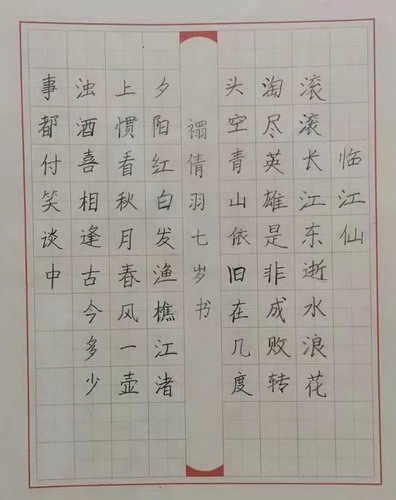 临江仙
滚滚长江东逝水浪花
淘尽英雄是非成败转
头空青山依旧在几度
禤倩羽七岁书
夕阳红白发渔樵江渚
上惯看秋月春风一壶
浊酒喜相逢古今多少
事都付笑谈中